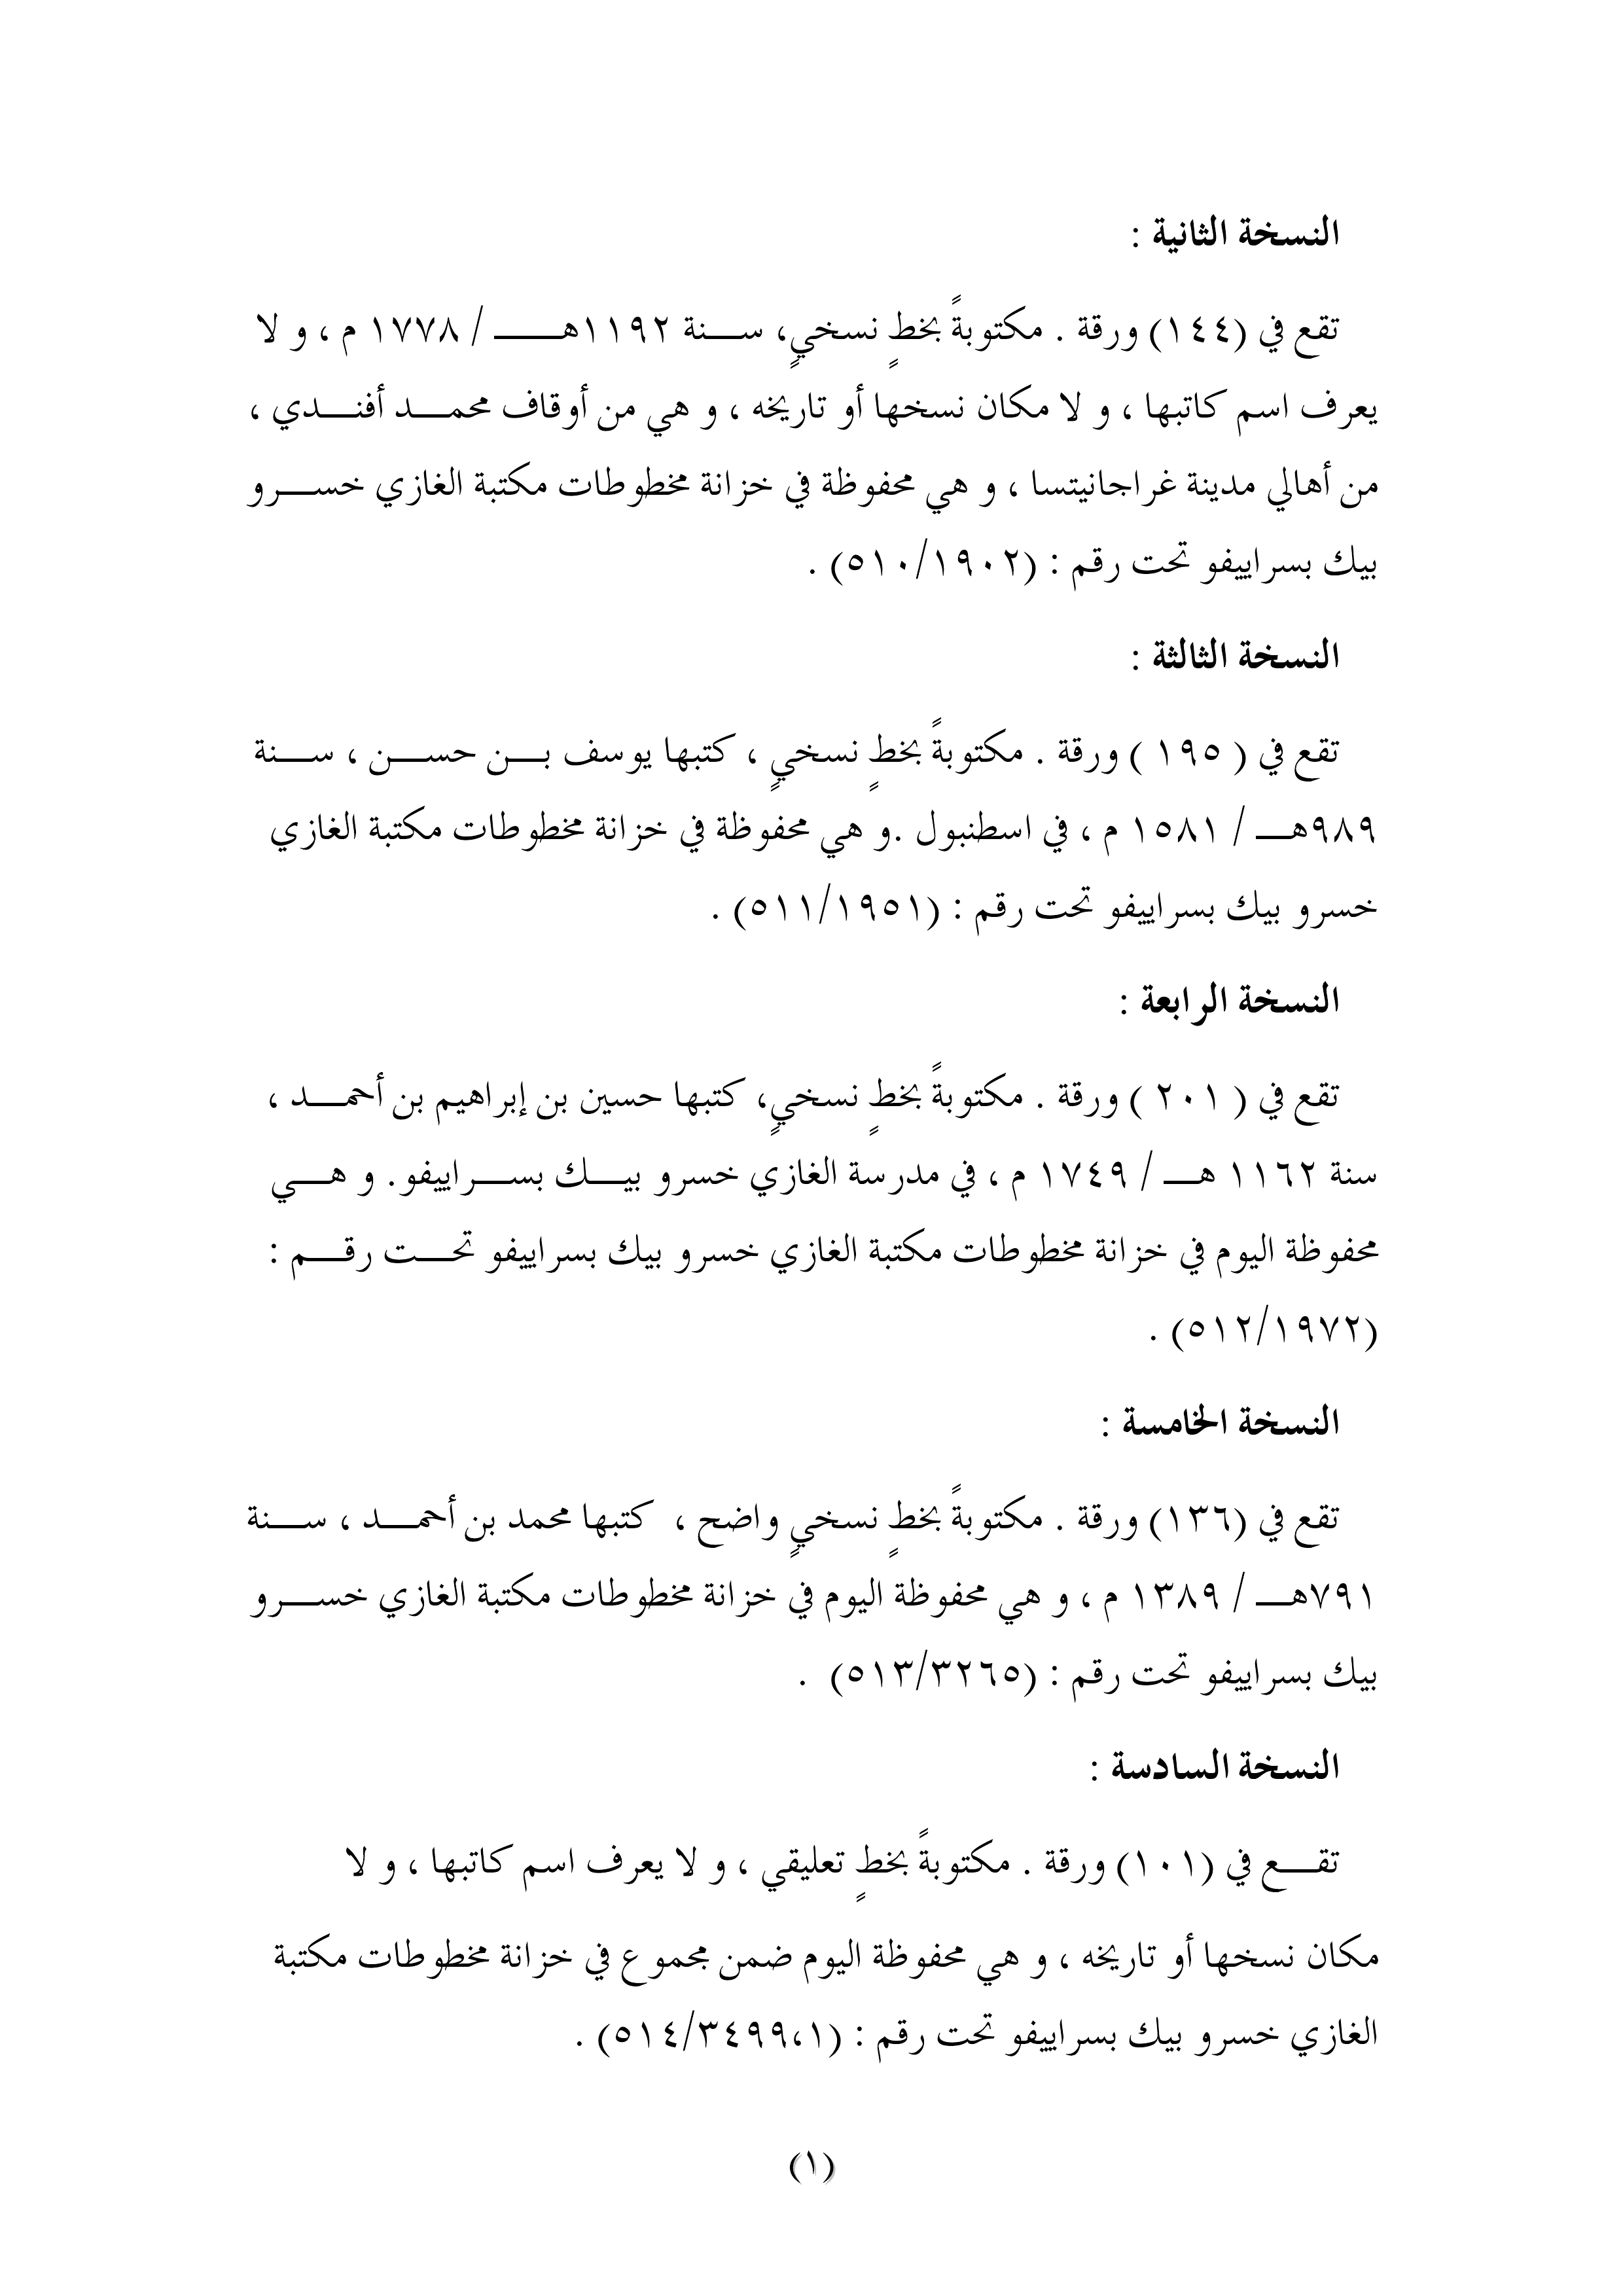 النسخة الثانية :
تقع في (١٤٤) ورقة . مكتوبةً بخطٍ نسخيٍ، سنة ١١٩٢هـ / ١٧٧٨ م ، و لا
يعرف اسم كاتبها ، و لا مكان نسخها أو تاريخه ، و هي من أوقاف محمد أفندي ،
من أهالي مدينة غراجانيتسا ، و هي محفوظة في خزانة مخطوطات مكتبة الغازي خسرو
بيك بسراييفو تحت رقم : (٥١٠/١٩٠٢) .
النسخة الثالثة :
تقع في ( ١٩٥ ) ورقة . مكتوبةً بخطٍ نسخيٍ ، كتبها يوسف بن حسن ، سنة
٩٨٩هـ / ١٥٨١ م ، في اسطنبول .و هي محفوظة في خزانة مخطوطات مكتبة الغازي
خسرو بيك بسراييفو تحت رقم : (٥١١/١٩٥١) .
النسخة الرابعة :
تقع في ( ٢٠١ ) ورقة . مكتوبةً بخطٍ نسخيٍ، كتبها حسين بن إبراهيم بن أحمد ،
سنة ١١٦٢ هـ / ١٧٤٩ م ، في مدرسة الغازي خسرو بيك بسراييفو. و هي
محفوظة اليوم في خزانة مخطوطات مكتبة الغازي خسرو بيك بسراييفو تحت رقم :
(٥١٢/١٩٧٢) .
النسخة الخامسة :
تقع في (١٣٦) ورقة . مكتوبةً بخطٍ نسخيٍ واضح ، كتبها محمد بن أحمد ، سنة
٧٩١هـ / ١٣٨٩ م ، و هي محفوظة اليوم في خزانة مخطوطات مكتبة الغازي خسرو
بيك بسراييفو تحت رقم : (٥١٣/٣٢٦٥) .
النسخة السادسة :
تقع في (١٠١) ورقة . مكتوبةً بخطٍ تعليقي ، و لا يعرف اسم كاتبها ، و لا
مكان نسخها أو تاريخه ، و هي محفوظة اليوم ضمن مجموع في خزانة مخطوطات مكتبة
الغازي خسرو بيك بسراييفو تحت رقم : (٥١٤/٣٤٩٩،١) .
(١)